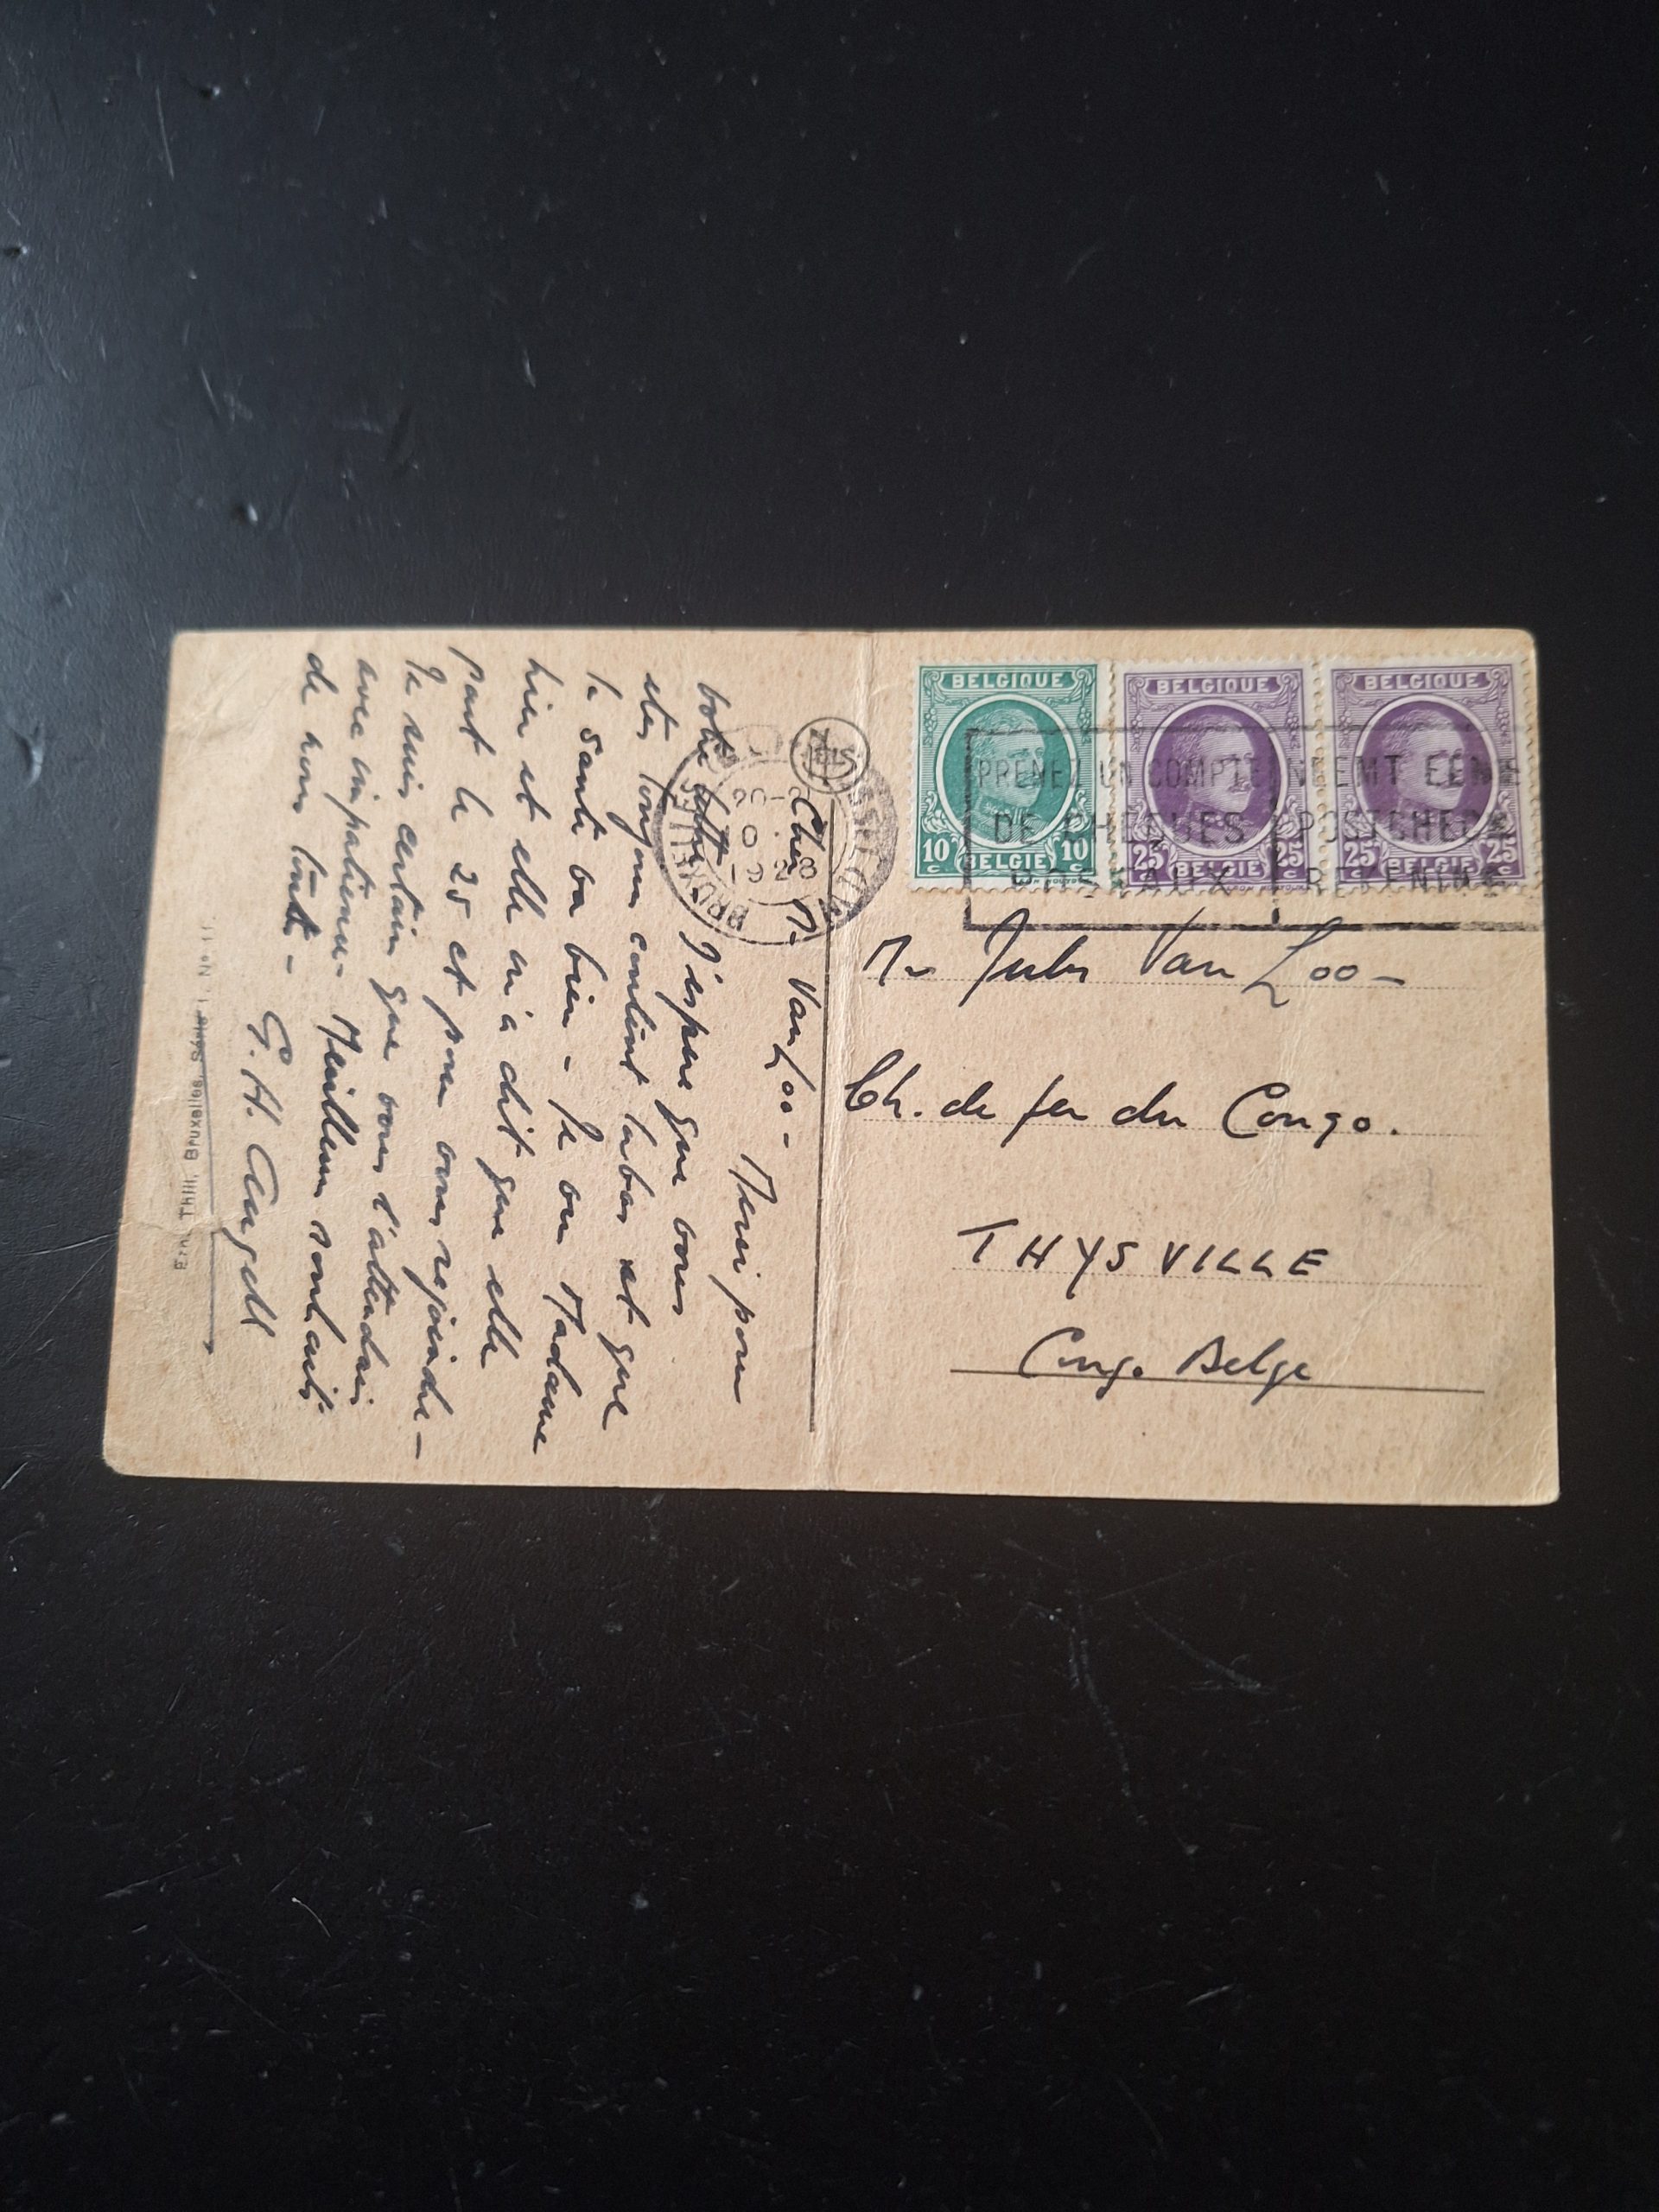 Cher Mr Van Loo - Merci pour
votre lettre J'espère que vous
êtes toujours content labas et que
la santé va bien - Je vu Madame
hier et elle m'a dit que elle
part le 25 et pour vous rejoindre -
Je suis certain que vous l'attendez
avec impatience - Meilleurs souhaits
de nous tous -
G. H. Angell
Ern. Thill, Bruxelles, Série 1, No 11
BELGIQUE
10 c BELGIE 10 c
BELGIQUE
25 c BELGIE 25 c
BELGIQUE
25 c BELGIE 25 c
PRENEZ UN COMPTE NEEMT EENE
DE CHEQUES POSTCHECK
POSTAUX REKENING
BRUXELLES BRUSSEL
Mr Jules Van Loo -
Ch. de fer du Congo.
THYSVILLE
Congo Belge